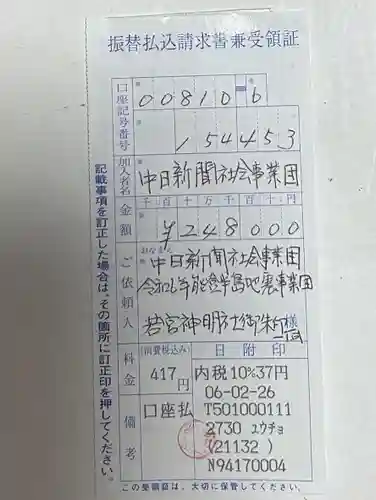 振替払込請求書兼受領証
口座記号番号
00810-6
154453
加入者名
中日新聞社会事業団
金額
千百十万千百十円
¥248000
ご依頼人
おなまえ
中日新聞社会事業団
令和6年能登半島地震事業団
若宮神明社御朱印
様
料金
(消費税込み)
417円
日附印
内税10%37円
06-02-26
備考
口座払
T501000111
2730 ユウチョ
(21132 )
N94170004
この受領証は、大切に保管してください。
記載事項を訂正した場合は、その箇所に訂正印を押してください。